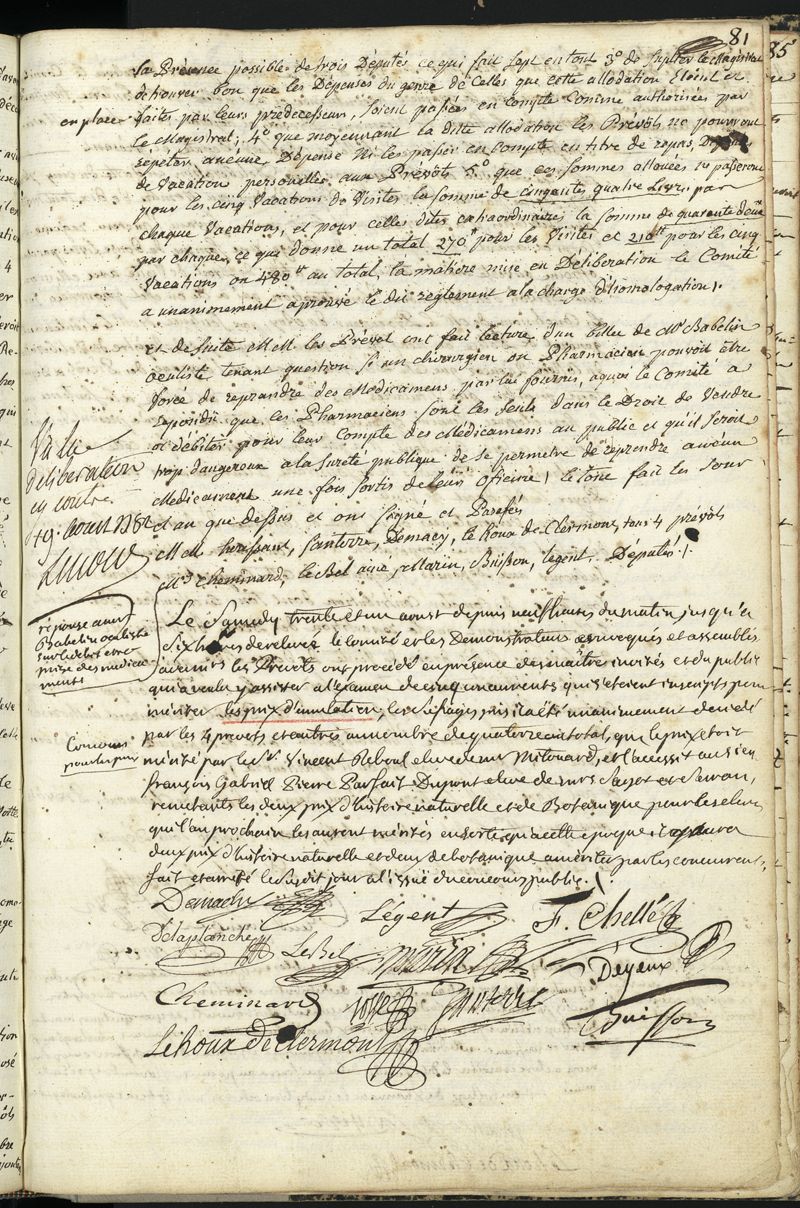 81
la Présence possible de trois Députés ce qui fait sept en tout 3.° de suplier le Magistrat
de trouver bon que les Dépenses du genre de celles que cette allodation Eteint et
en place
faites par leurs prédecesseurs, soient passées en Compte Comme authorisées par
le Magistrat; 4.° que moyennant la ditte allodation les Prévôts ne pourront
répéter aucune Dépense ni les passer en Compte en titre de repas,
de Vacation personelles aux Prévôts 5.° que ces sommes allouées ne passeront
pour les cinq Vacations de Visites la somme de cinquante quatre Livres par
chaque Vacations, et pour celles dites extraordinaires la somme de quarante deux
par chaque, ce qui donne un total 270 pour les Visites et 210 pour les cinq
Vacations ou 480 au total, la matiere mise en Deliberation le Comité
a unanimement aprouvé le dit reglement a la charge d'homologation
et de suite MM. les Prévot ont fait lecture d'un billet de Mr Babelin
oculiste tenant question si un chirurgien ou Pharmacien pouvoit être
forcé de reprendre des Medicamens par lui fournis, a quoi le Comité a
repondu que les Pharmaciens sont les seuls dans le Droit de Vendre
et débiter pour leur Compte des Médicamens au public et qu'il seroit
trop dangereux a la sureté publique de se permetre de reprendre aucun
Medicament une fois sortis de leurs oficine! le tout fait les Jour
et an que dessus et ont signé et Parafés
MM. herissant, Santerre, Demachy, le Roux de Clermont, tous 4 prévots
Mrs Cheminard, le Bel ainé, Marin, Buisson, legent, Députés
Vu la
deliberation
19. aout 1782
Lenoir
réponse au sr
Babelin oculiste
sur le debit et re-
prise des medica-
ments
Le Samedy trente et un aoust depuis neuf heures du matin jusqu'a
six heures de relevée le comité et les Demonstrateurs convoqués et assemblés
les Prévots ont procédé en présence des maitres invités et du public
qui a voulu y assister a l'examen de cinq concurrents qui s'étoient inscripts pour
mériter les prix d'émulation, les suffrages pris il a été unanimement décidé
par les 4 prevots et autres au nombre de quatorze en total, que le prix étoit
Concours
pour les prix
mérité par le Sr. Vincent Reboul eleve de mr Mitouard, et l'accessit au sieur
françois Gabriel Pierre Parfait Dupont eleve de mrs Sagot et Servan,
remettants les deux prix d'histoire naturelle et de Botanique pour les eleves
qui l'an prochain les auront mérités en sorte qu'a cette epoque il y aura
deux prix d'histoire naturelle et deux de botanique a mériter par les concurrents,
fait et arreté le susdit jour a l'issue du concours public.
Demachy
Légent
F. Chellé
Delaplanche
Le Bel
Marin
Déyeux
Cheminard
Josse
Santerre
Buisson
LeRoux De Clermont